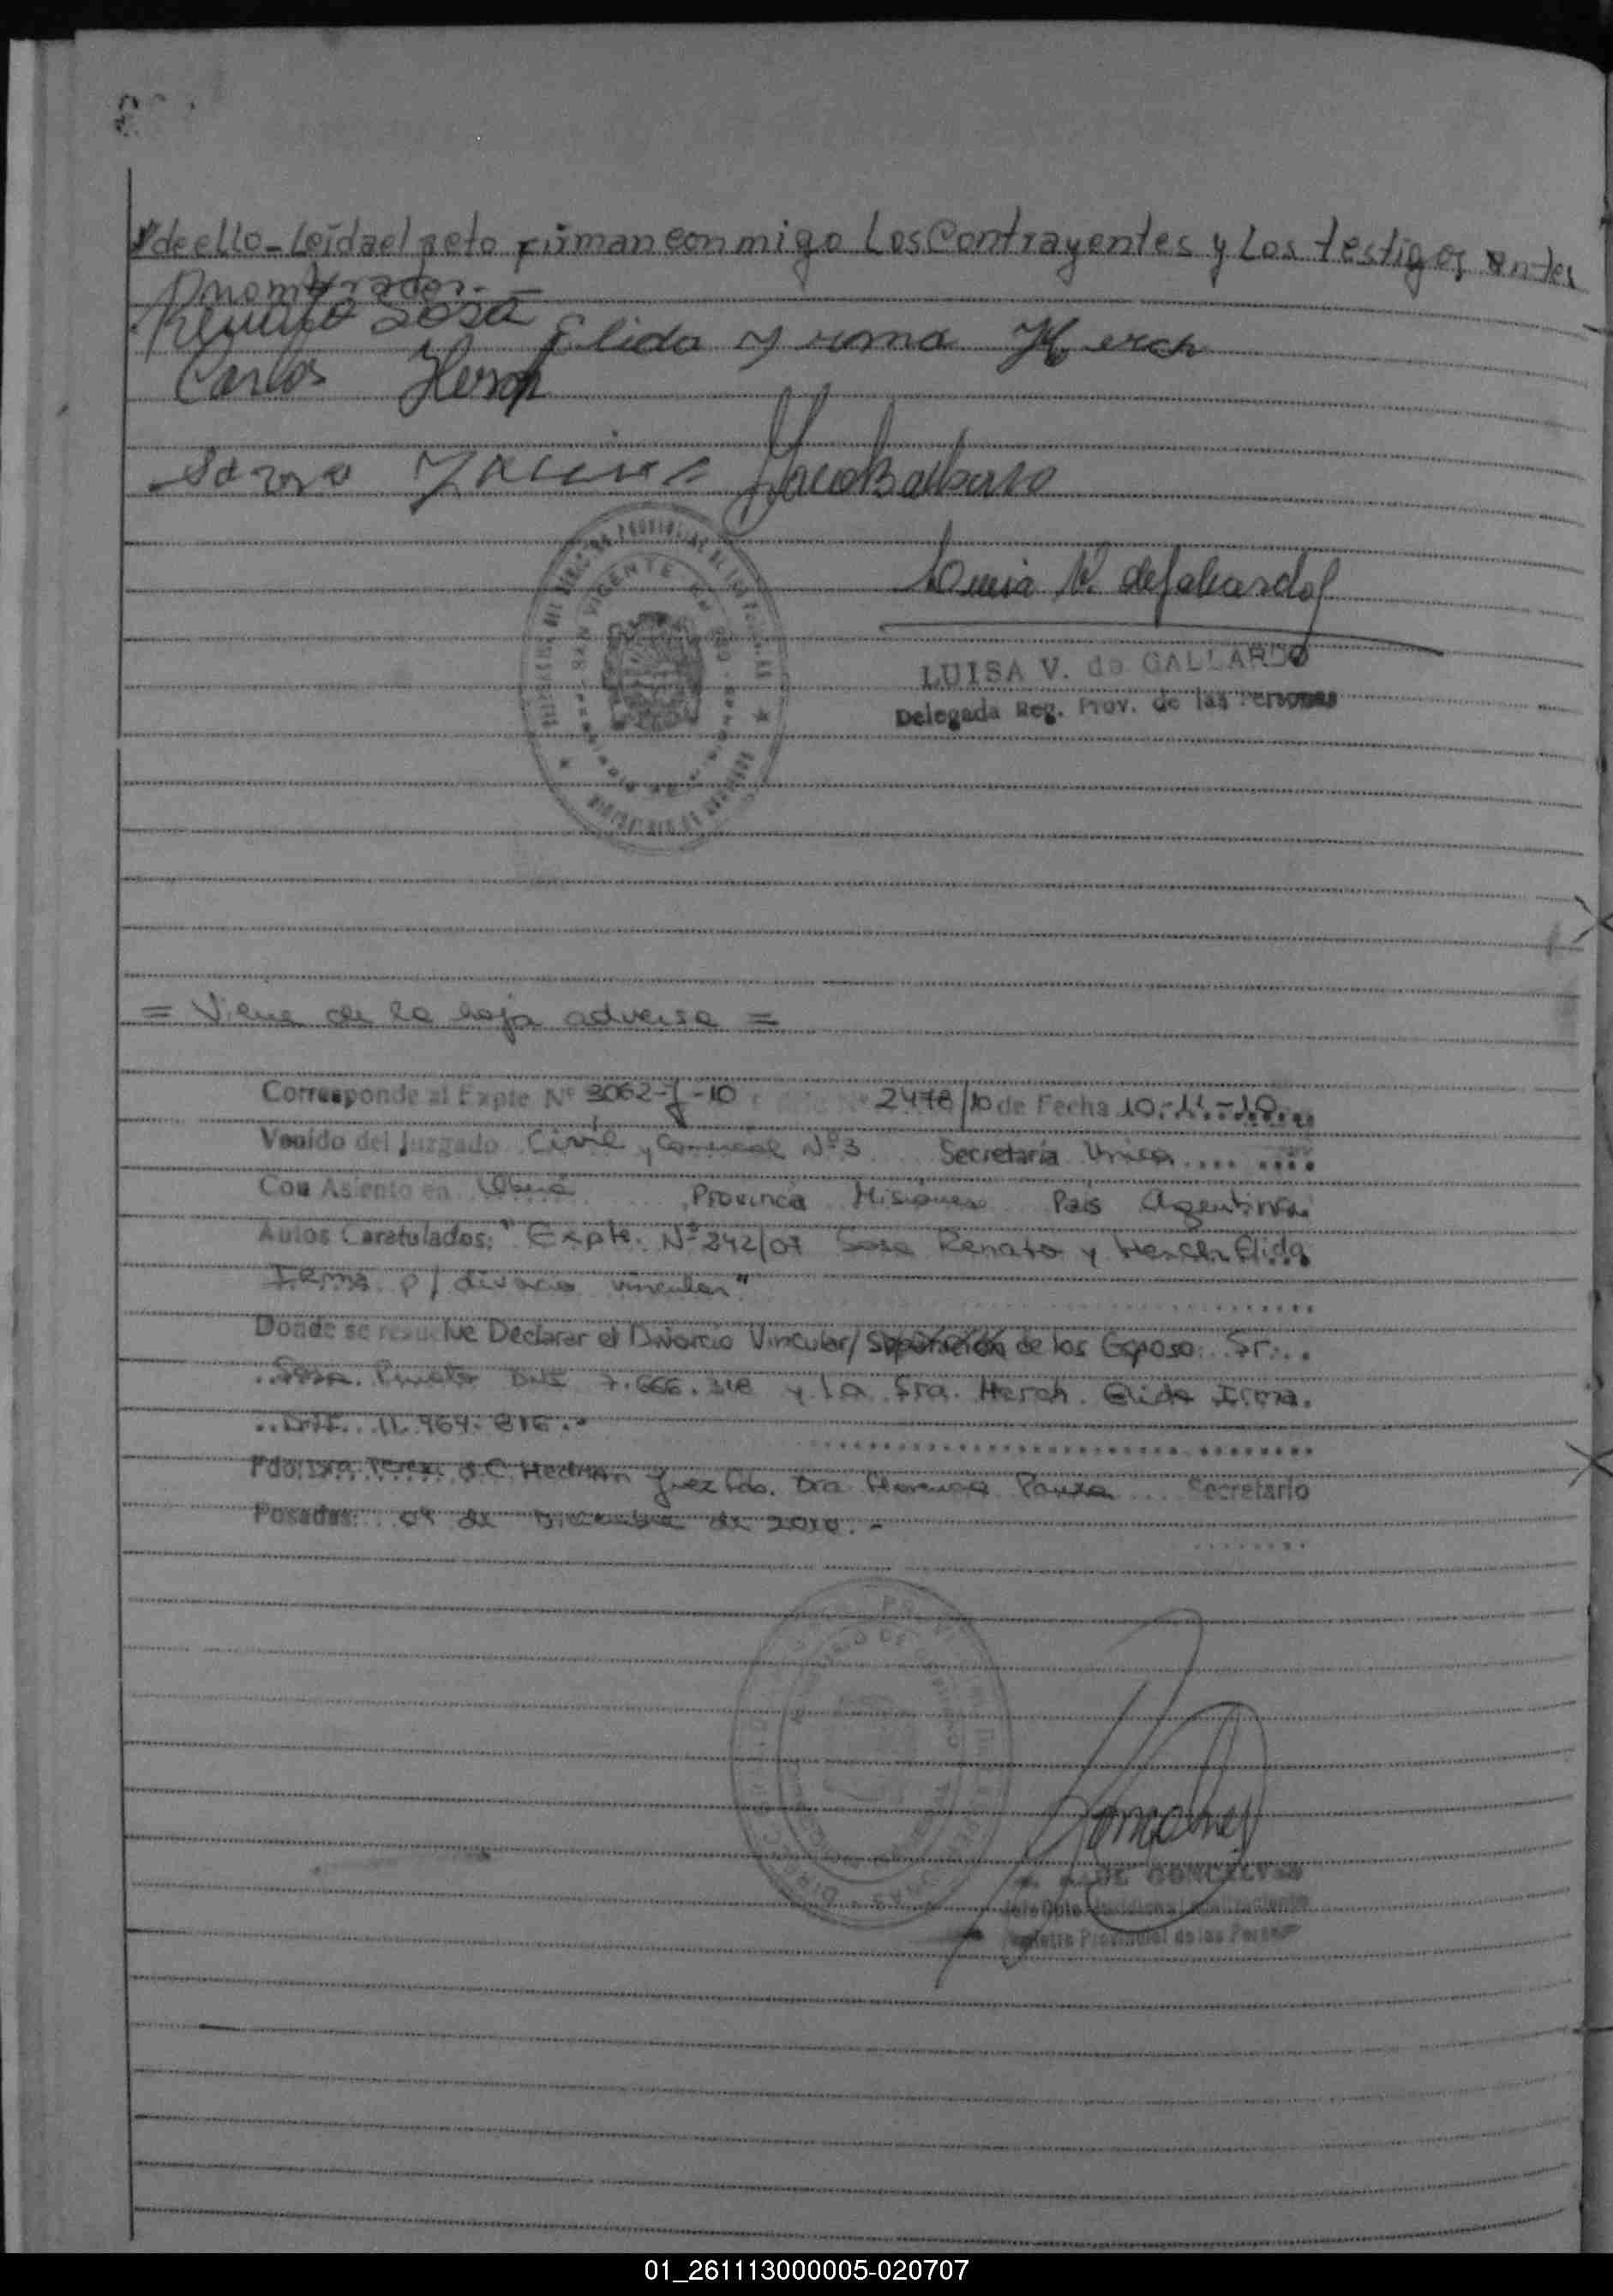 de ello - Leída el acto firman conmigo Los Contrayentes y Los testigos antes
nombrados. -
Renato Sosa
Elida Yrma Herch
Carlos Herch
LUISA V. de GALLARDO
Delegada Reg. Prov. de las Personas
SAN VICENTE
= Viene de la hoja adversa =
Corresponde al Expte Nº 3062-J-10 2478/10 de Fecha 10-11-10
Venido del Juzgado Civil y Comercial Nº 3 Secretaría Unica
Con Asiento en Oberá Provincia Misiones País Argentina
Autos Caratulados: "Expte. Nº 242/07 Sosa Renato y Herch Elida
Irma p/ divorcio vincular"
Donde se resuelve Declarar el Divorcio Vincular/ Separación de los Esposo: Sr.
Sosa Renato DNI 7.666.318 y la Sra. Herch Elida Irma.
DNI. 11.969.816.-
Juez Fdo. Dra Secretario
Posadas: 09 de Diciembre de 2010.-
DE GONCALVES
Registro Provincial de las Personas
01_261113000005-020707